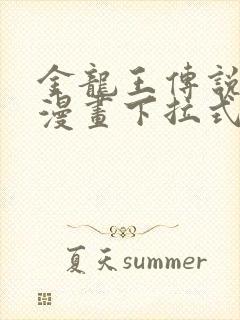 金龍王傳說
漫畫下拉式
夏天summer